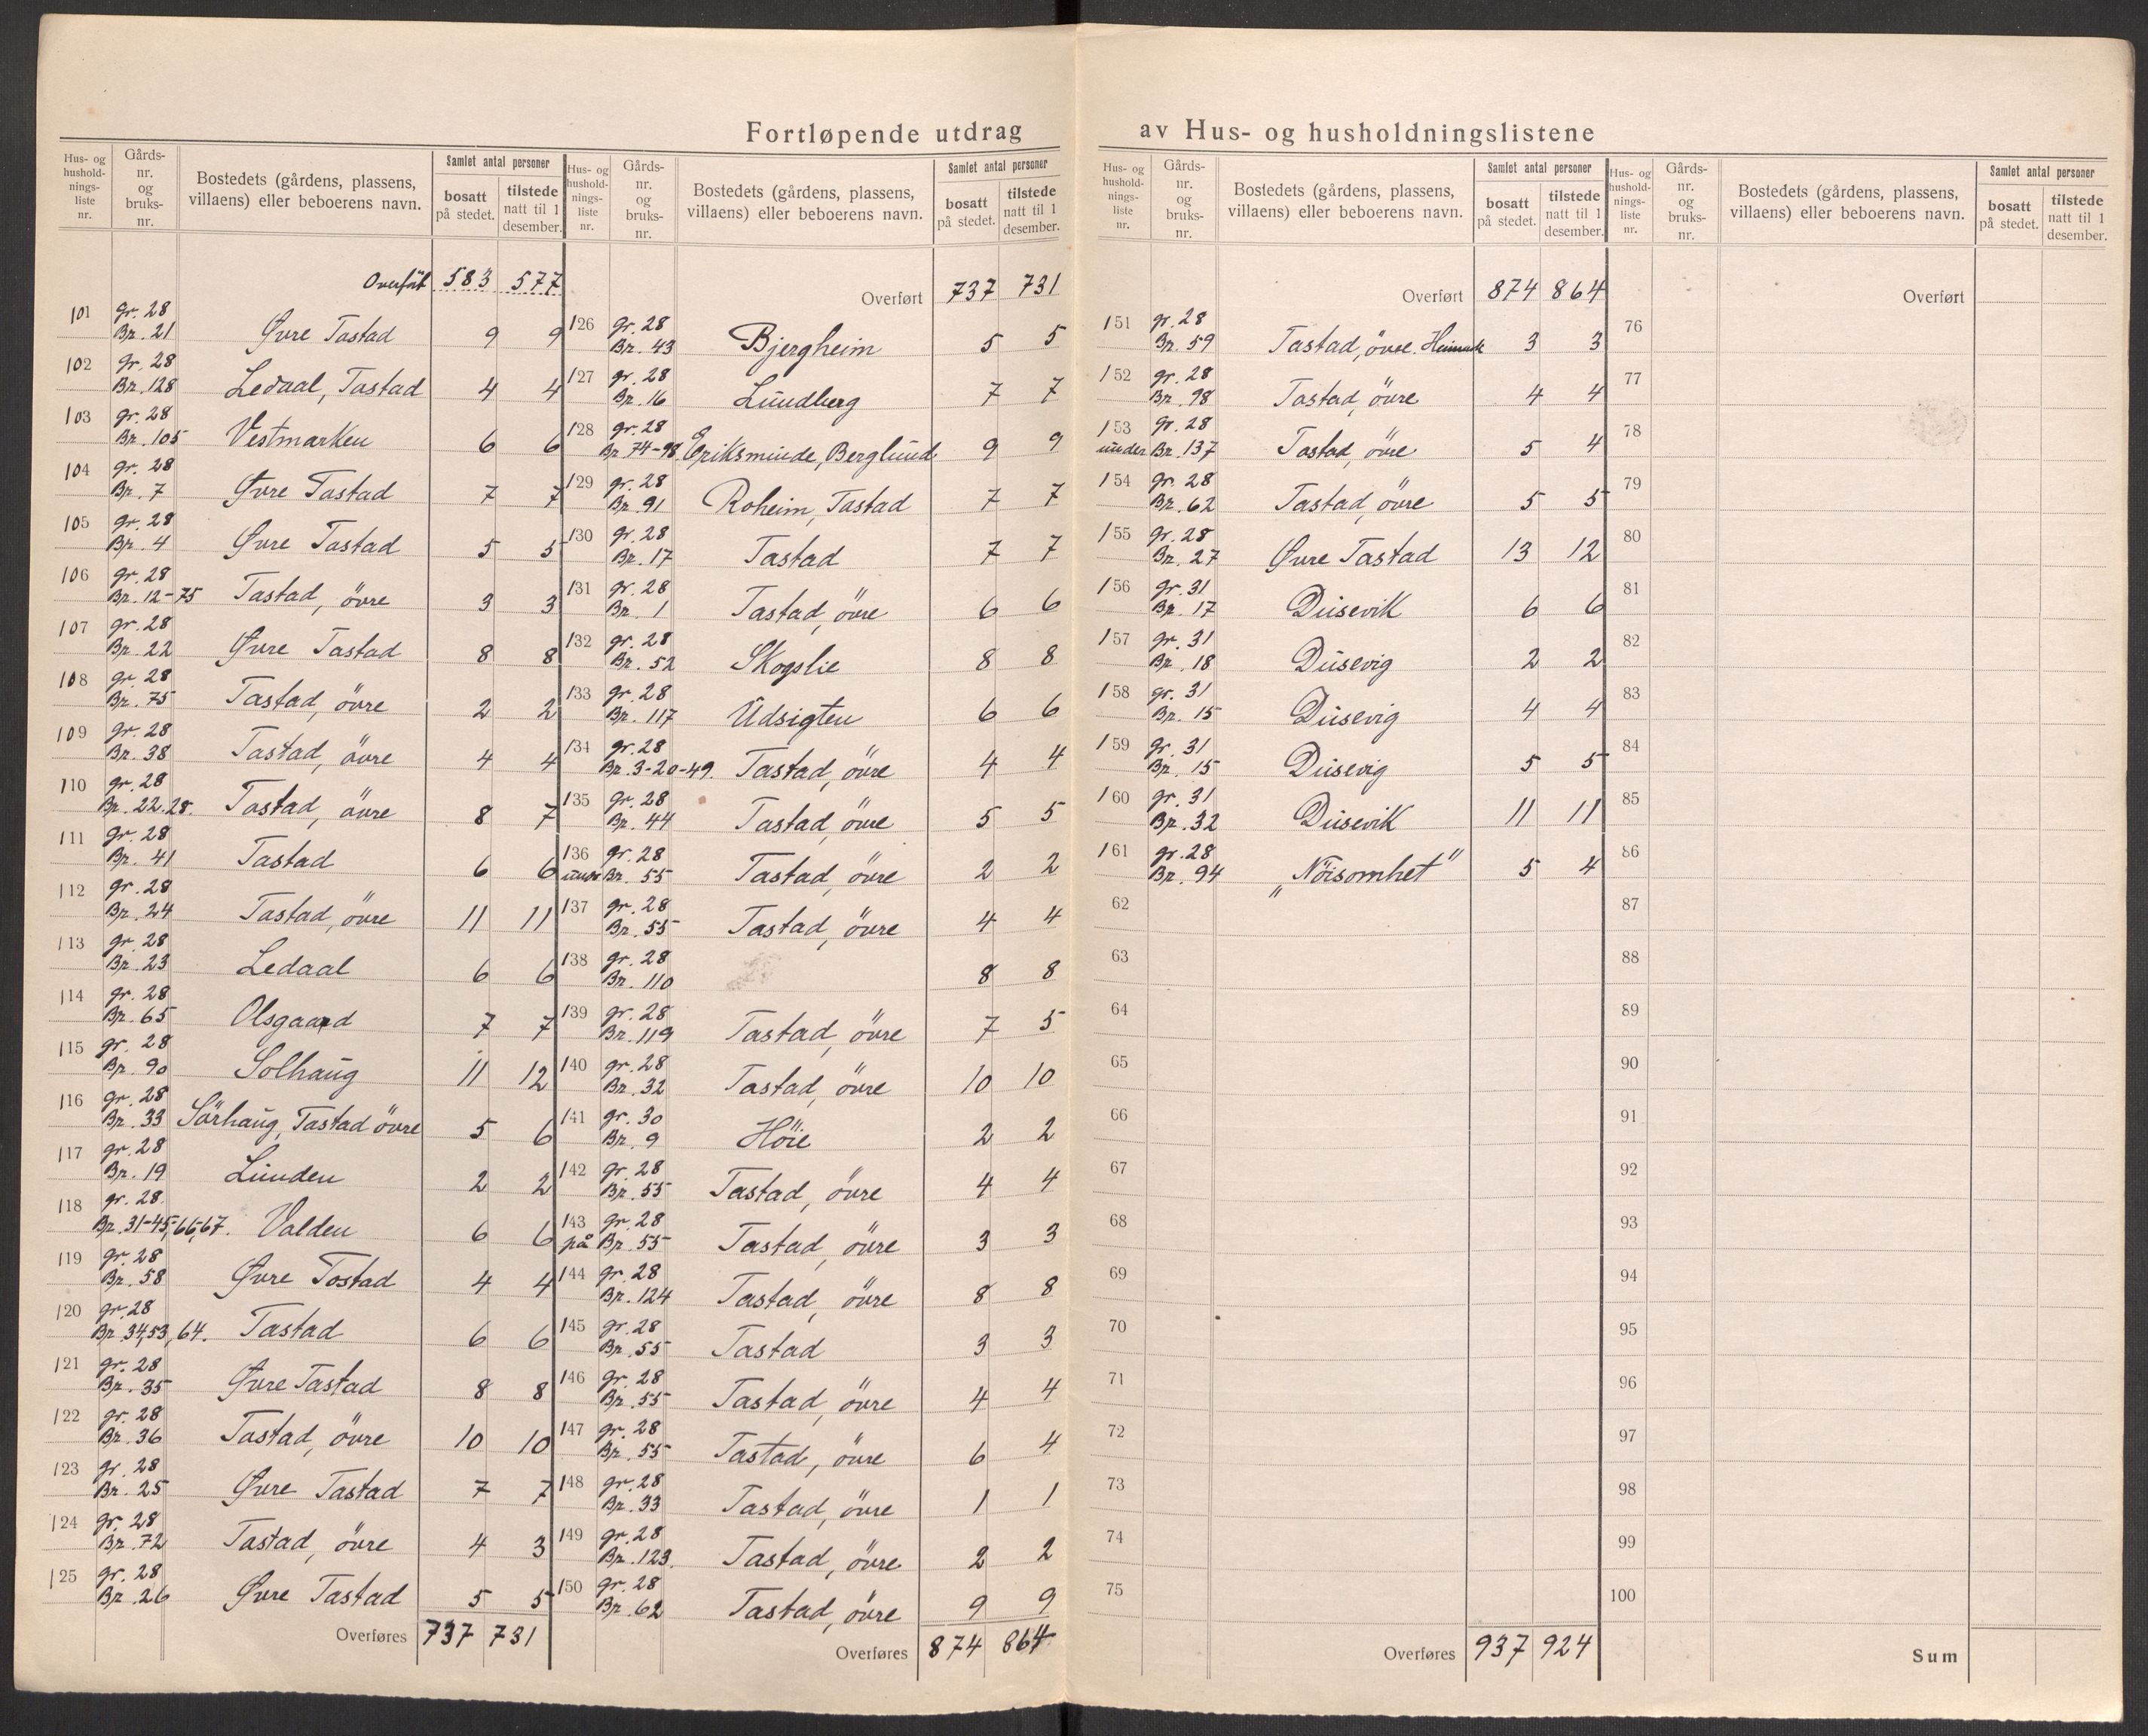 Fortløpende utdrag av Hus- og husholdningslistene
Hus- og hushold-nings-liste nr. Gårds-nr. og bruks-nr. Bostedets (gårdens, plassens, villaens) eller beboerens navn. Samlet antal personer bosatt på stedet. tilstede natt til 1 desember.
Overført 583 577
101 gr. 28 Br. 21 Øvre Tastad 9 9
102 gr. 28 Br. 128 Ledaal, Tastad 4 4
103 gr. 28 Br. 105 Vestmarken 6 6
104 gr. 28 Br. 7 Øvre Tastad 7 7
105 gr. 28 Br. 4 Øvre Tastad 5 5
106 gr. 28 Br. 12-75 Tastad, övre 3 3
107 gr. 28 Br. 22 Øvre Tastad 8 8
108 gr. 28 Br. 75 Tastad, övre 2 2
109 gr. 28 Br. 38 Tastad, övre 4 4
110 gr. 28 Br. 22.28. Tastad, övre 8 7
111 gr. 28 Br. 41 Tastad 6 6
112 gr. 28 Br. 24 Tastad, övre 11 11
113 gr. 28 Br. 23 Ledaal 6 6
114 gr. 28 Br. 65 Olsgaard 7 7
115 gr. 28 Br. 90 Solhaug 11 12
116 gr. 28 Br. 33 Sörhaug, Tastad övre 5 6
117 gr. 28 Br. 19 Lunden 2 2
118 gr. 28. Br. 31-45,66,67. Valden 6 6
119 gr. 28 Br. 58 Øvre Tastad 4 4
120 gr. 28 Br. 34,53,64. Tastad 6 6
121 gr. 28 Br. 35 Øvre Tastad 8 8
122 gr. 28 Br. 36 Tastad, övre 10 10
123 gr. 28 Br. 25 Øvre Tastad 7 7
124 gr. 28 Br. 72 Tastad, övre 4 3
125 gr. 28 Br. 26 Øvre Tastad 5 5
Overføres 737 731
Hus- og hushold-nings-liste nr. Gårds-nr. og bruks-nr. Bostedets (gårdens, plassens, villaens) eller beboerens navn. Samlet antal personer bosatt på stedet. tilstede natt til 1 desember.
Overført 737 731
126 gr. 28 Br. 43 Bjergheim 5 5
127 gr. 28 Br. 16 Lundberg 7 7
128 gr. 28 Br. 74-98. Eriksminde, Berglund 9 9
129 gr. 28 Br. 91 Roheim, Tastad 7 7
130 gr. 28 Br. 17 Tastad 7 7
131 gr. 28 Br. 1 Tastad, övre 6 6
132 gr. 28 Br. 52 Skogslie 8 8
133 gr. 28 Br. 117 Udsigten 6 6
134 gr. 28 Br. 3-20-49. Tastad, övre 4 4
135 gr. 28 Br. 44 Tastad, övre 5 5
136 gr. 28 under Br. 55 Tastad, övre 2 2
137 gr. 28 Br. 55 Tastad, övre 4 4
138 gr. 28 Br. 110 8 8
139 gr. 28 Br. 119 Tastad, övre 7 5
140 gr. 28 Br. 32 Tastad, övre 10 10
141 gr. 30 Br. 9 Höie 2 2
142 gr. 28 Br. 55 Tastad, övre 4 4
143 gr. 28 på Br. 55 Tastad, övre 3 3
144 gr. 28 Br. 124 Tastad, övre 8 8
145 gr. 28 Br. 55 Tastad 3 3
146 gr. 28 Br. 55 Tastad, övre 4 4
147 gr. 28 Br. 55 Tastad, övre 6 4
148 gr. 28 Br. 33 Tastad, övre 1 1
149 gr. 28 Br. 123. Tastad, övre 2 2
150 gr. 28 Br. 62 Tastad, övre 9 9
Overføres 874 864
Hus- og hushold-nings-liste nr. Gårds-nr. og bruks-nr. Bostedets (gårdens, plassens, villaens) eller beboerens navn. Samlet antal personer bosatt på stedet. tilstede natt til 1 desember.
Overført 874 864
151 gr. 28 Br. 59 Tastad, övre. 3 3
152 gr. 28 Br. 98 Tastad, övre 4 4
153 gr. 28 under Br. 137 Tastad, övre 5 4
154 gr. 28 Br. 62 Tastad, övre 5 5
155 gr. 28 Br. 27 Øvre Tastad 13 12
156 gr. 31 Br. 17 Dusevik 6 6
157 gr. 31 Br. 18 Dusevig 2 2
158 gr. 31 Br. 15 Dusevig 4 4
159 gr. 31 Br. 15 Dusevig 5 5
160 gr. 31 Br. 32 Dusevik 11 11
161 gr. 28 Br. 94 „Nöisomhet" 5 4
62
63
64
65
66
67
68
69
70
71
72
73
74
75
Overføres 937 924
Hus- og hushold-nings-liste nr. Gårds-nr. og bruks-nr. Bostedets (gårdens, plassens, villaens) eller beboerens navn. Samlet antal personer bosatt på stedet. tilstede natt til 1 desember.
Overført
76
77
78
79
80
81
82
83
84
85
86
87
88
89
90
91
92
93
94
95
96
97
98
99
100
Sum